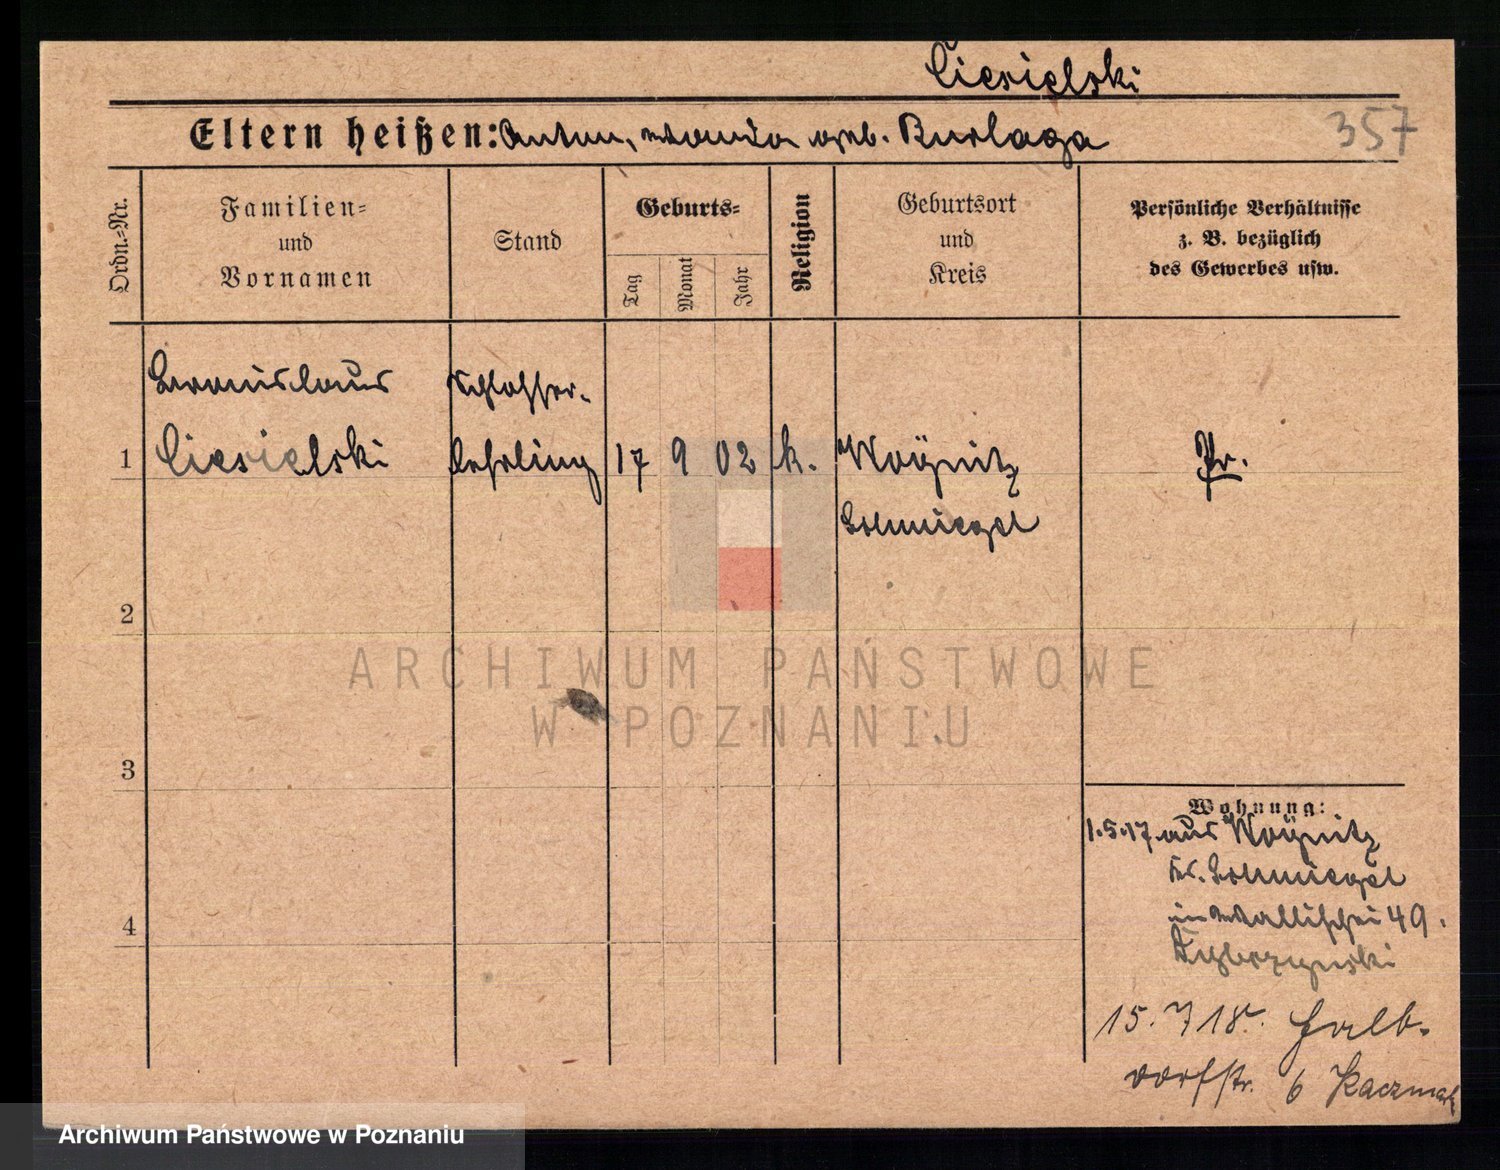 Ciesielski
Eltern heißen: Anton, Maria geb. Burlaga
357
Ordn.=Nr.
Familien=
und
Vornamen
Stand
Geburts=
Tag
Monat
Jahr
Religion
Geburtsort
und
Kreis
Persönliche Verhältnisse
z. B. bezüglich
des Gewerbes usw.
Bronislaus
Schlosser-
1 Ciesielski lehrling 17 9 02 k. Woynitz Pr.
Schmiegel
2
ARCHIWUM PAŃSTWOWE
W POZNANIU
3
Wohnung:
1.5.17 aus Woynitz
Kr. Schmiegel
in Wallischei 49.
4
15. 7 18. Halb-
dorfstr. 6 Kaczmarek
Archiwum Państwowe w Poznaniu